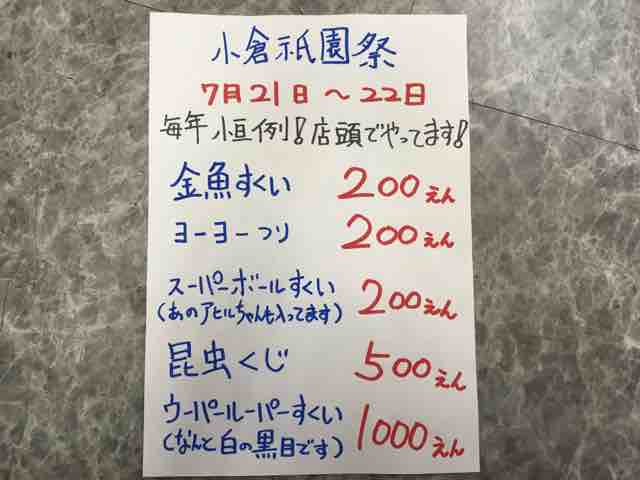 小倉祇園祭
7月21日〜22日
毎年恒例!店頭でやってます!
金魚すくい 200えん
ヨーヨーつり 200えん
スーパーボールすくい 200えん
(あのアヒルちゃんも入ってます)
昆虫くじ 500えん
ウーパールーパーすくい 1000えん
(なんと白の黒目です)